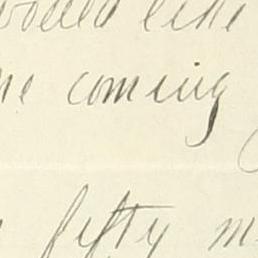 would like
coming
fifty m